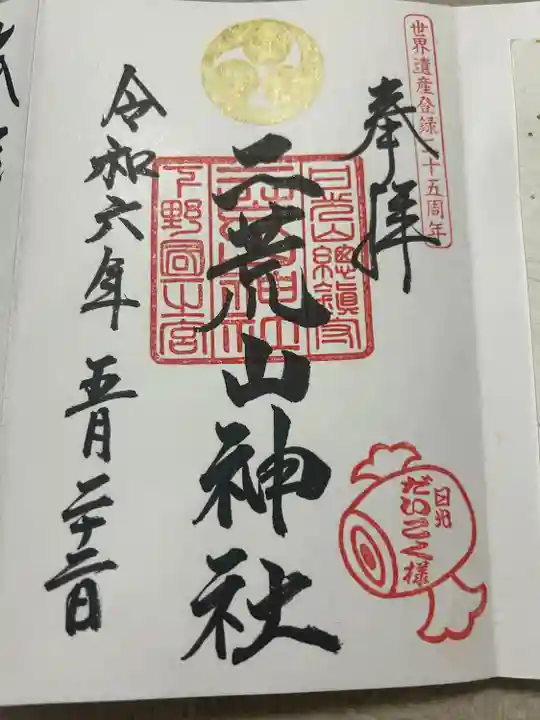 世界遺産登録二十五周年
奉拝
二荒山神社
日光山總鎮守
下野國一之宮
日光
だいこく様
令和六年 五月二十二日